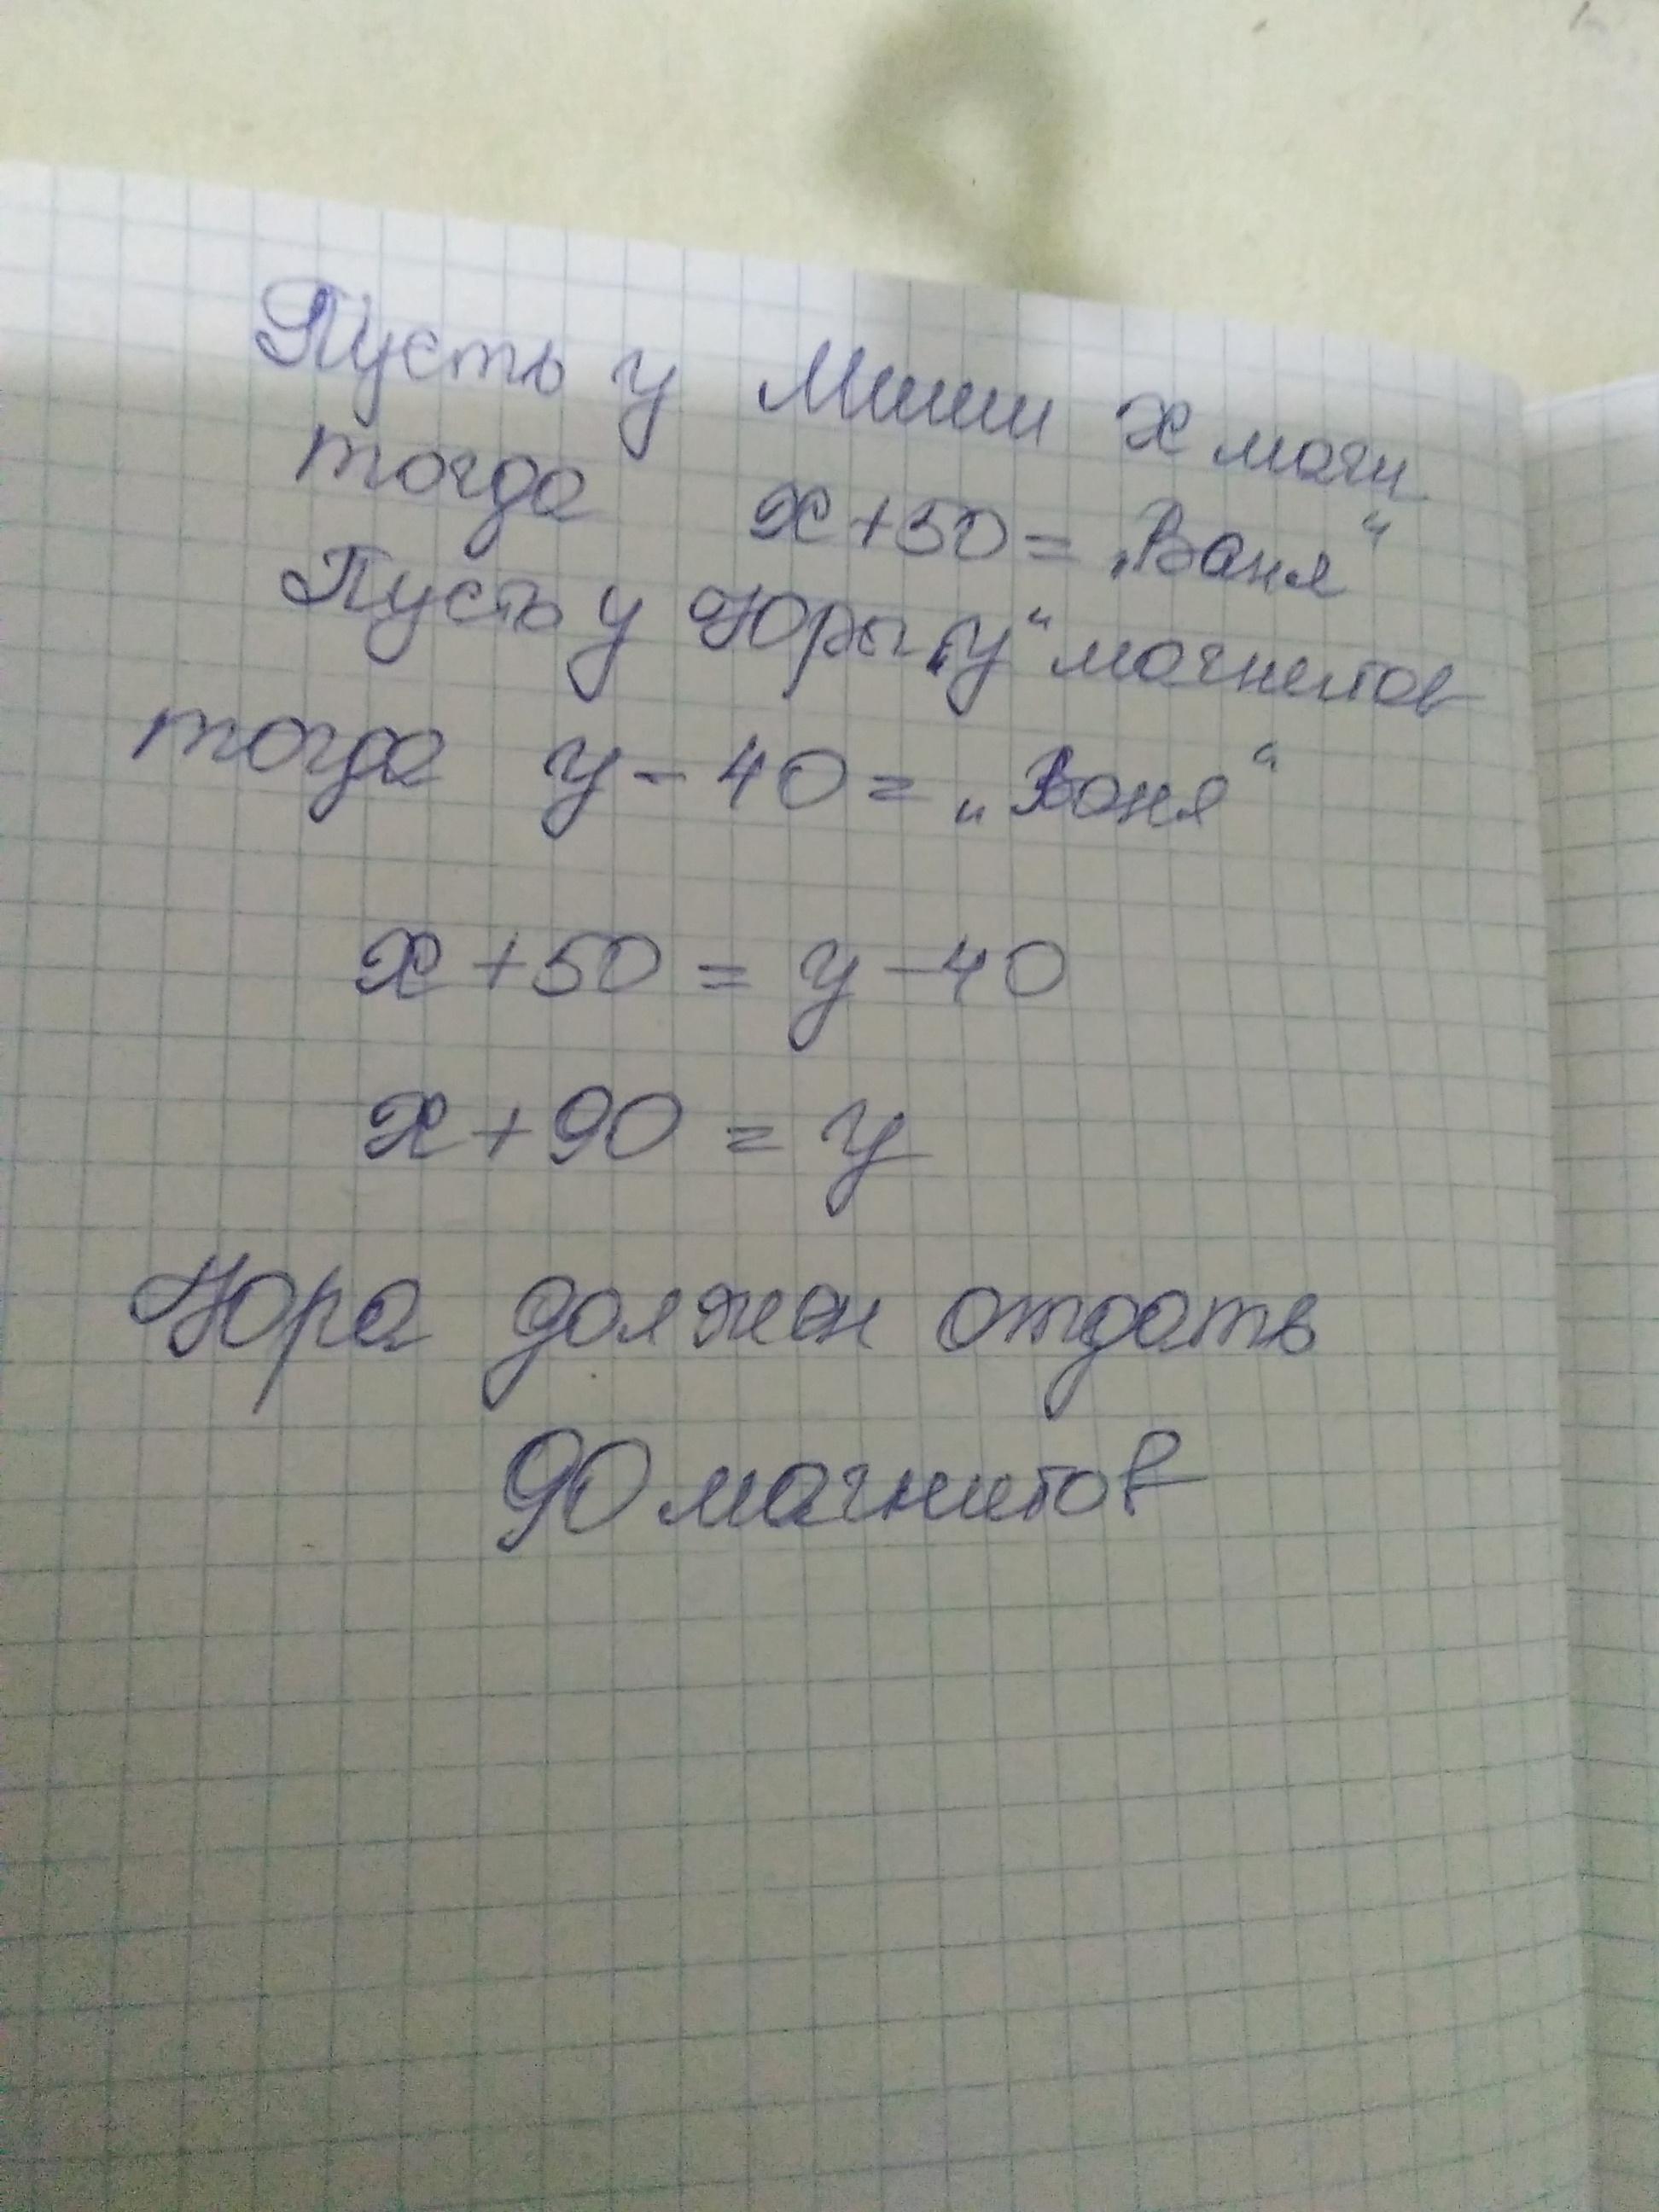 Пусть у Миши x магн
тогда x+50= „Ваня“
Пусть у Юры „y“ магнитов
тогда y-40= „Ваня“
x+50 = y-40
x+90 = y
Юра должен отдать
90 магнитов